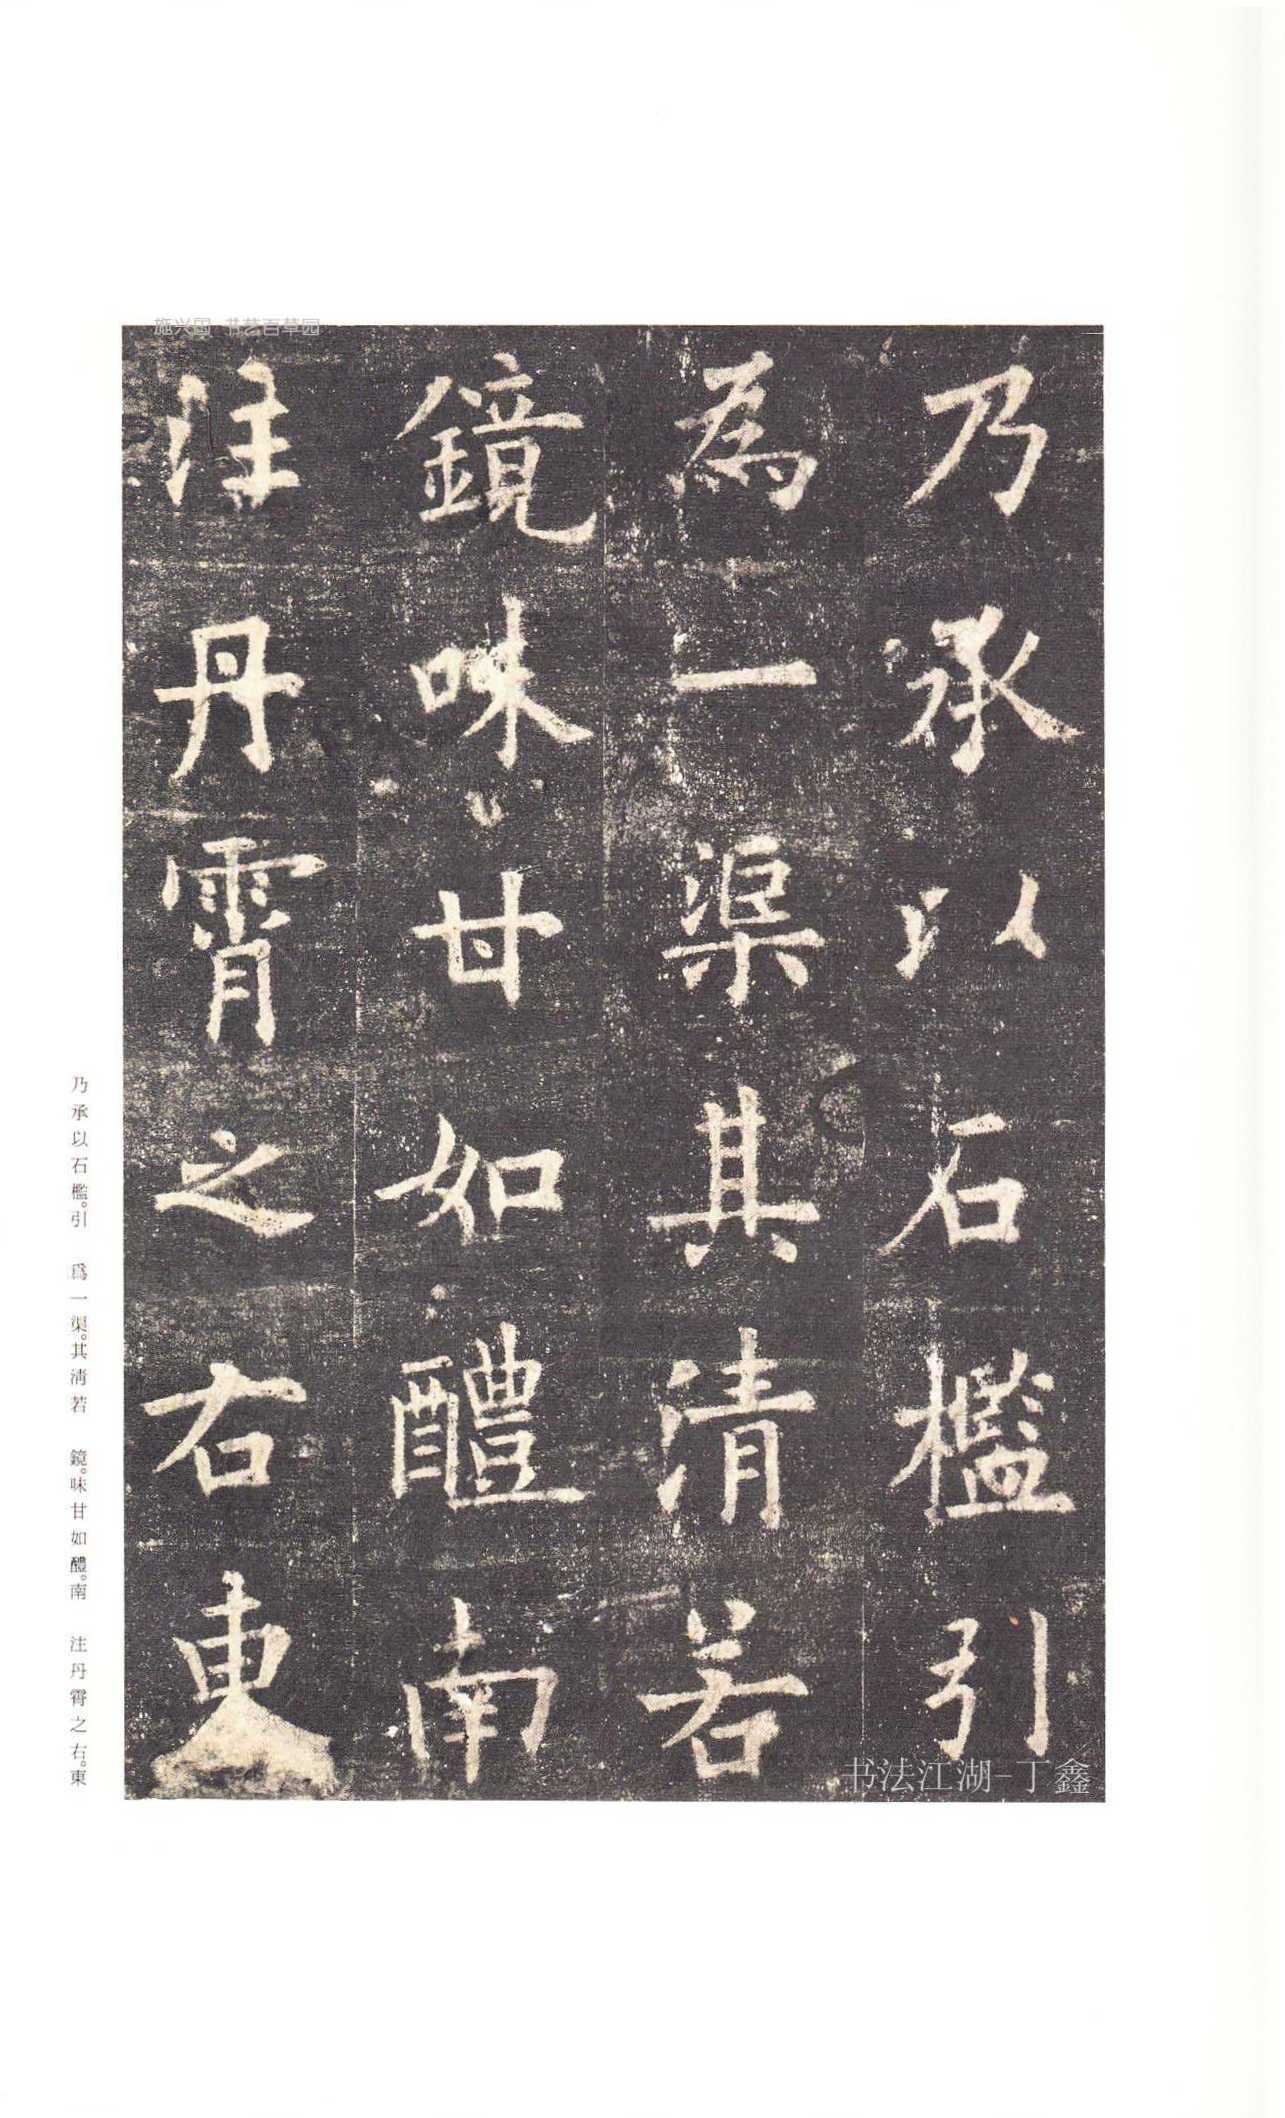 施兴国 书艺百草园
乃承以石檻引
為一渠其清若
鏡味甘如醴南
注丹霄之右東
书法江湖-丁鑫
乃承以石檻。引 爲一渠。其清若 鏡。味甘如醴。南 注丹霄之右。東